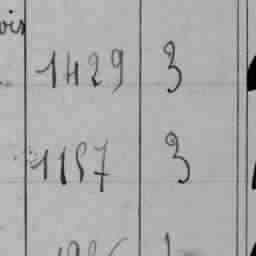 ois
1429 3
1157 3